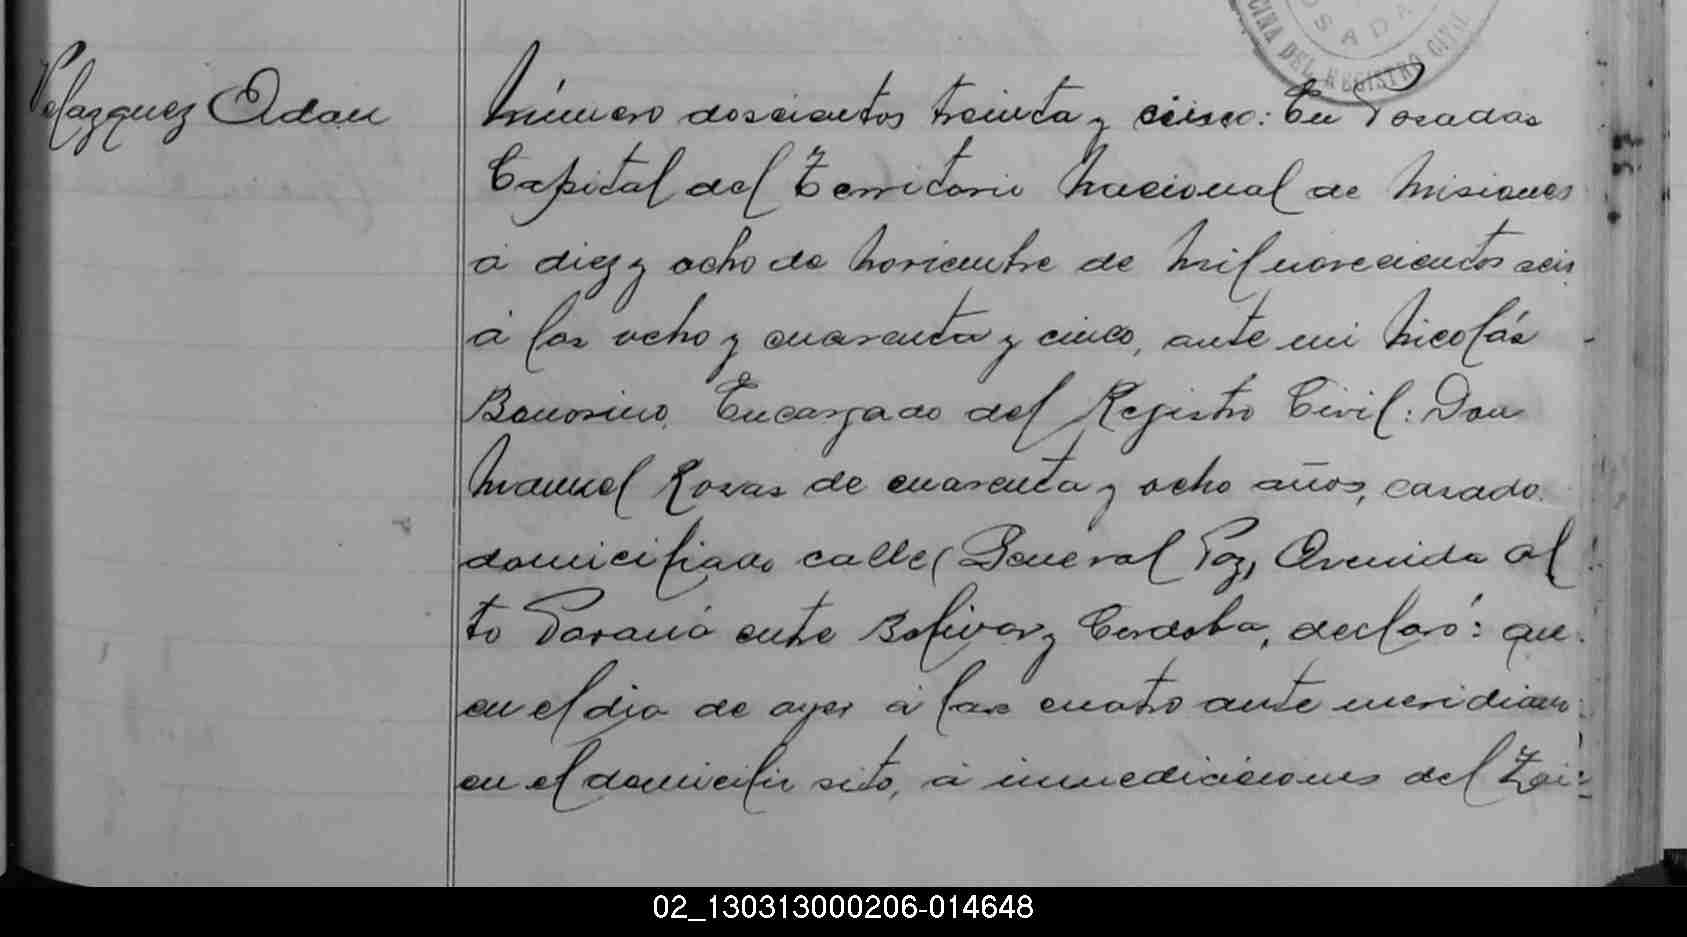 OSADA
CINA DEL REGISTRO CIVIL
Velazquez Adan
Número doscientos treinta y cinco: En Posadas
Capital del Territorio Nacional de Misiones
á diez y ocho de Noviembre de Mil novecientos seis
á las ocho y cuarenta y cinco, ante mi Nicolás
Bonosino, Encargado del Registro Civil: Don
Manuel Rosas de cuarenta y ocho años, casado
domiciliado calle General Paz, Avenida Al
to Paraná entre Bolivar y Cordoba, declaró: que
en el dia de ayer á las cuatro ante meridiano
en el domicilio sito, á inmediaciones del Zai-
02_130313000206-014648